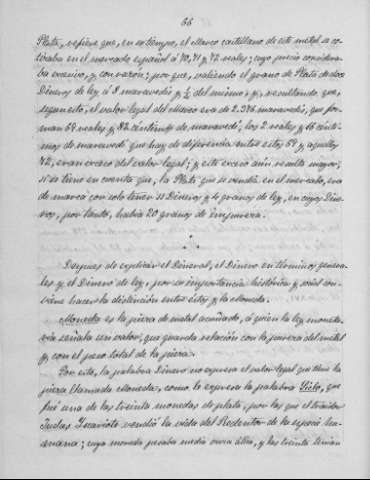 66
Plata, refiere que, en su tiempo, el Marco castellano de este metal se co-
tizaba en el mercado español á 70, 71 y 72 reales; cuyo precio considera-
ba excesivo, y con razon; por que, valiendo el grano de Plata de doce
Dineros de ley á 8 maravedís y ½ del mismo y, resultando que,
segun esto, el valor legal del Marco era de 2.376 maravedís, que for-
man 69 reales y 82 céntimos de maravedí, los 2 reales y 16 cénti-
mos de maravedí que hay de diferencia entre estos 69 y aquellos
72, eran exceso del valor legal; y este exceso aún resulta mayor,
si se tiene en cuenta que, la Plata que se vendía en el mercado, era
de marca con solo tener 11 Dineros y 4 granos de ley, en cuyos Dine-
ros, por tanto, había 20 granos de impureza.
Despues de explicar el Dineral, el Dinero en términos genera-
les y el Dinero de ley, por su importancia histórica y social con-
viene hacer la distinción entre éstos y la Moneda.
Moneda es la pieza de metal acuñado, á quien la ley moneta-
ria señala un valor, que guarda relación con la pureza del metal
y, con el peso total de la pieza.
Por esto, la palabra Dinero no expresa el valor legal que tiene la
pieza llamada Moneda, como lo expresa la palabra Siclo, que
fué una de las treinta monedas de plata, por las que el traidor
Judas Iscariote vendió la vida del Redentor de la especie hu-
mana; cuya moneda pesaba media onza ática, y las treinta tenían